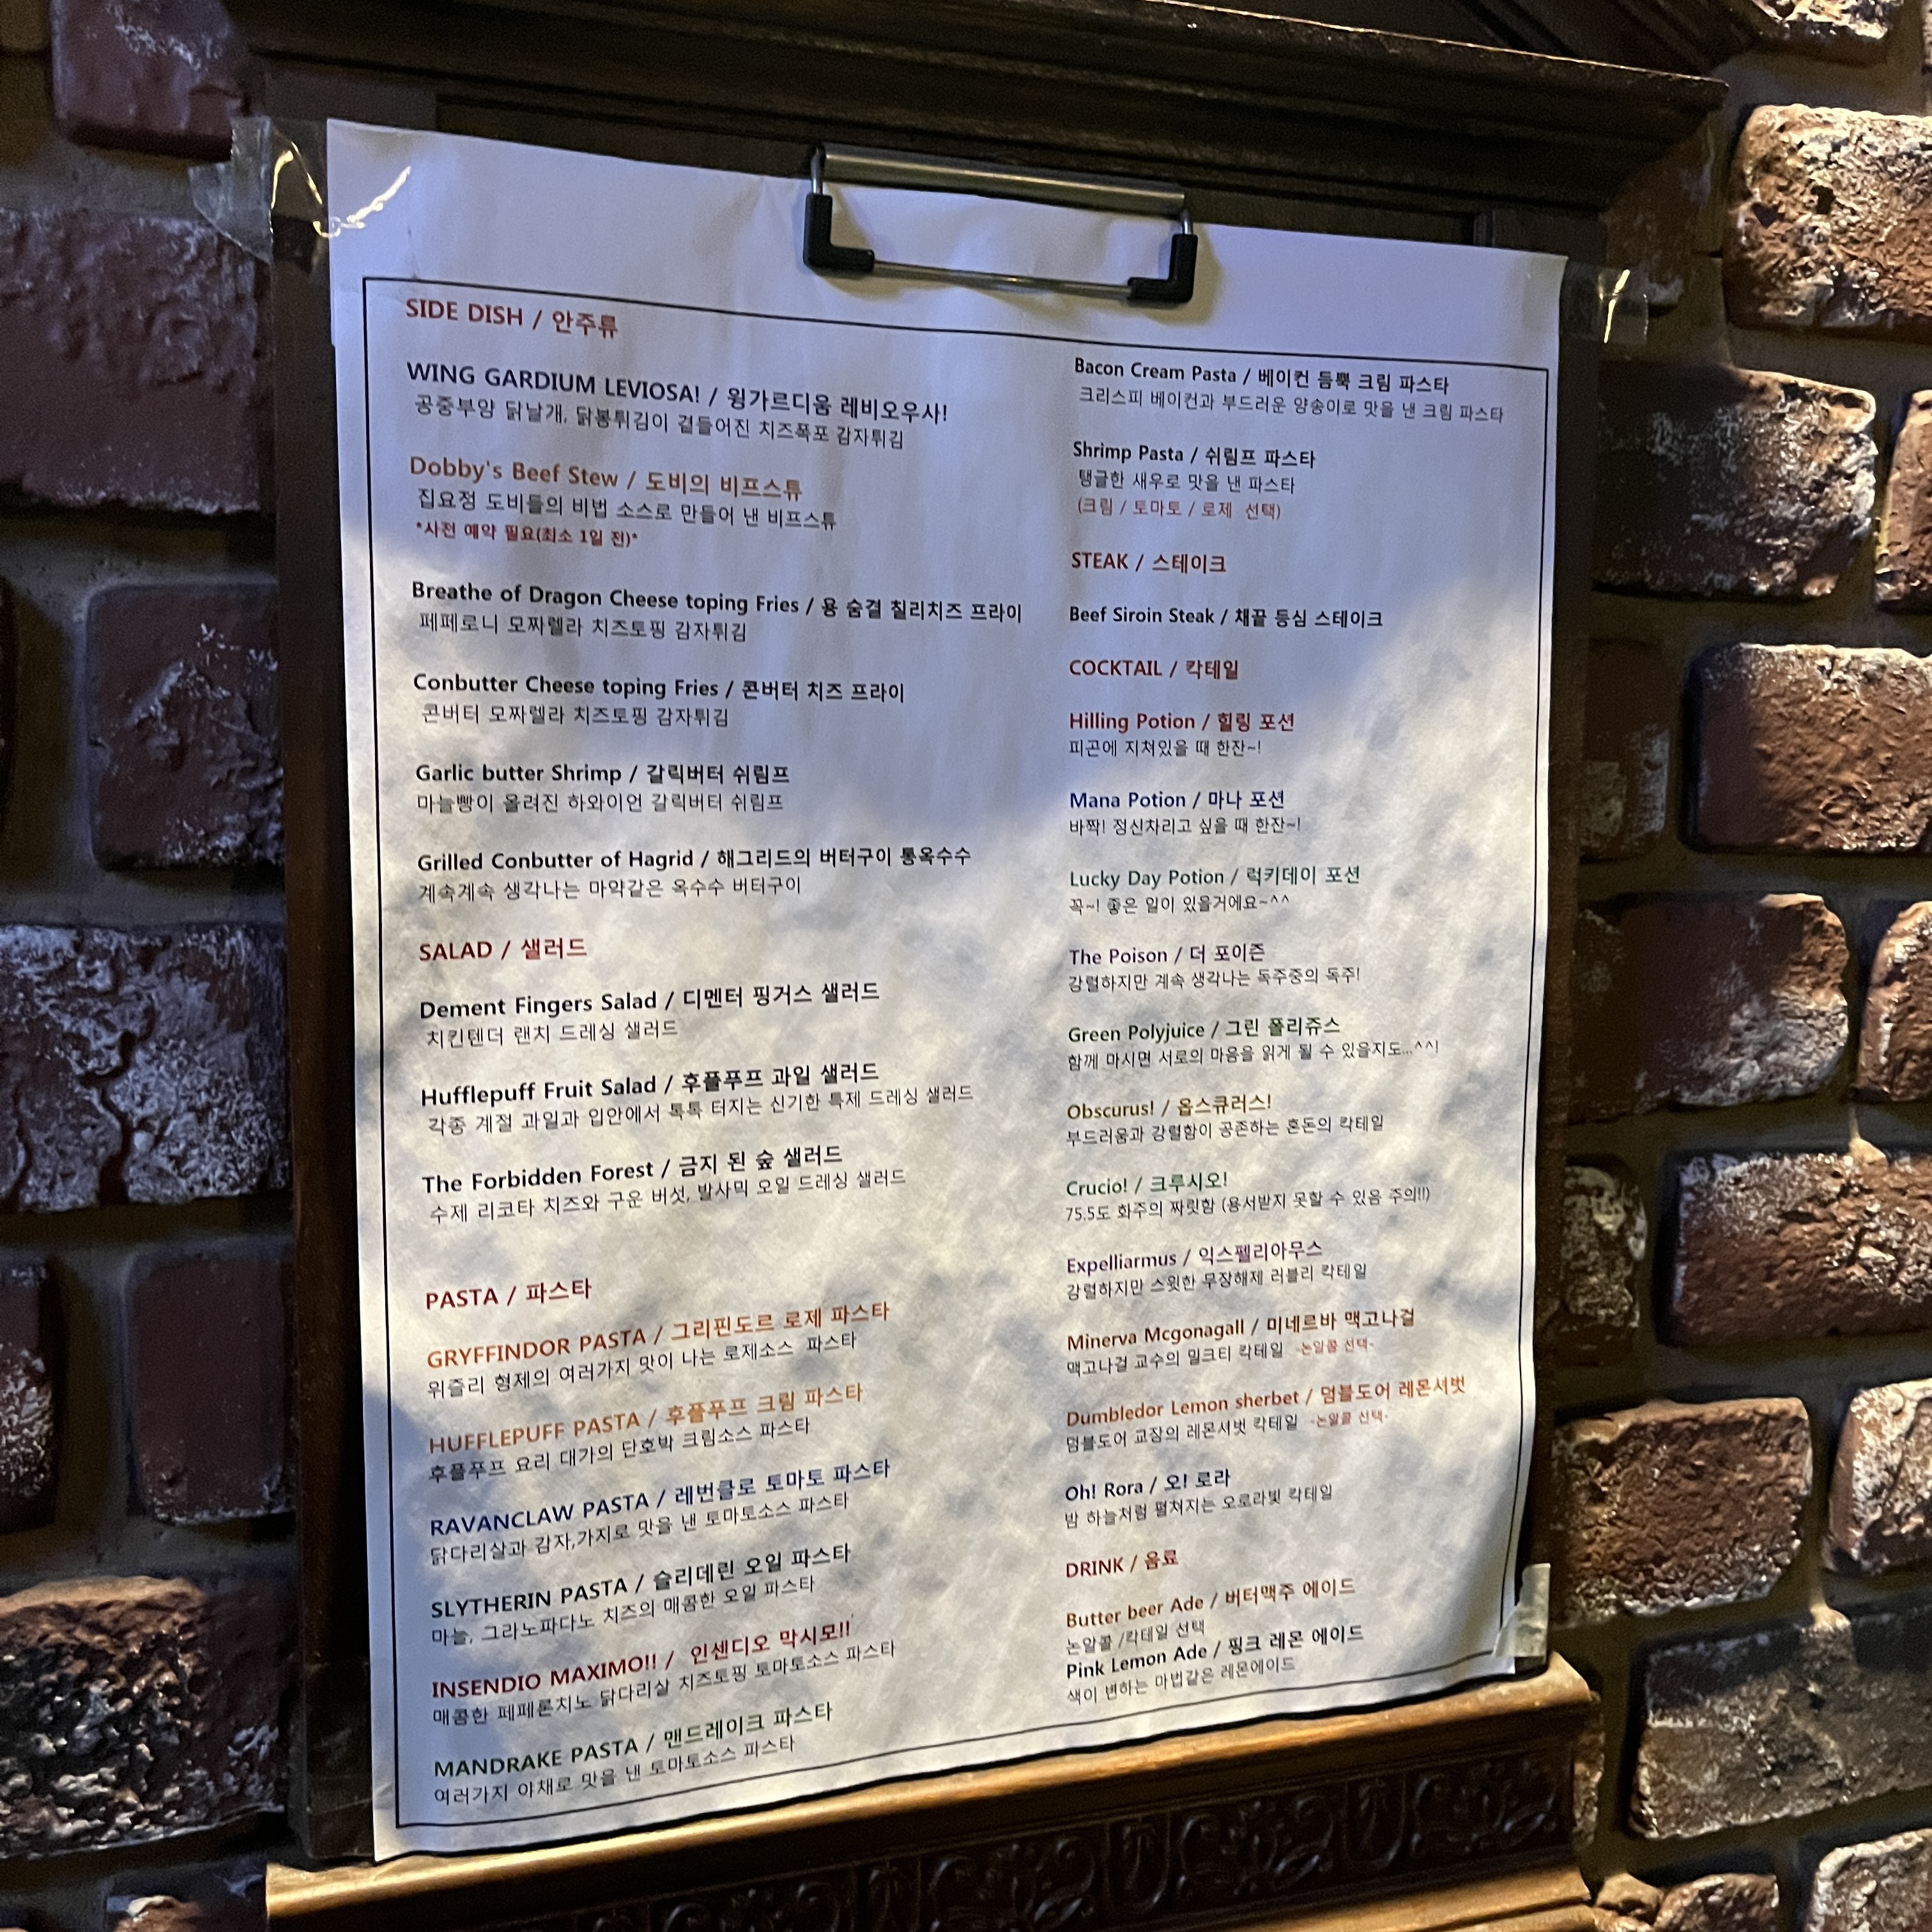 SIDE DISH / 안주류
WING GARDIUM LEVIOSA! / 윙가르디움 레비오우사!
공중부양 닭날개, 닭봉튀김이 곁들어진 치즈폭포 감자튀김
Dobby's Beef Stew / 도비의 비프스튜
집요정 도비들의 비법 소스로 만들어 낸 비프스튜
*사전 예약 필요(최소 1일 전)*
Breathe of Dragon Cheese toping Fries / 용 숨결 칠리치즈 프라이
페페로니 모짜렐라 치즈토핑 감자튀김
Conbutter Cheese toping Fries / 콘버터 치즈 프라이
콘버터 모짜렐라 치즈토핑 감자튀김
Garlic butter Shrimp / 갈릭버터 쉬림프
마늘빵이 올려진 하와이언 갈릭버터 쉬림프
Grilled Conbutter of Hagrid / 해그리드의 버터구이 통옥수수
계속계속 생각나는 마약같은 옥수수 버터구이
SALAD / 샐러드
Dement Fingers Salad / 디멘터 핑거스 샐러드
치킨텐더 랜치 드레싱 샐러드
Hufflepuff Fruit Salad / 후플푸프 과일 샐러드
각종 계절 과일과 입안에서 톡톡 터지는 신기한 특제 드레싱 샐러드
The Forbidden Forest / 금지 된 숲 샐러드
수제 리코타 치즈와 구운 버섯, 발사믹 오일 드레싱 샐러드
PASTA / 파스타
GRYFFINDOR PASTA / 그리핀도르 로제 파스타
위즐리 형제의 여러가지 맛이 나는 로제소스 파스타
HUFFLEPUFF PASTA / 후플푸프 크림 파스타
후플푸프 요리 대가의 단호박 크림소스 파스타
RAVANCLAW PASTA / 레번클로 토마토 파스타
닭다리살과 감자,가지로 맛을 낸 토마토소스 파스타
SLYTHERIN PASTA / 슬리데린 오일 파스타
마늘, 그라노파다노 치즈의 매콤한 오일 파스타
INSENDIO MAXIMO!! / 인센디오 막시모!!
매콤한 페페론치노 닭다리살 치즈토핑 토마토소스 파스타
MANDRAKE PASTA / 맨드레이크 파스타
여러가지 야채로 맛을 낸 토마토소스 파스타
Bacon Cream Pasta / 베이컨 듬뿍 크림 파스타
크리스피 베이컨과 부드러운 양송이로 맛을 낸 크림 파스타
Shrimp Pasta / 쉬림프 파스타
탱글한 새우로 맛을 낸 파스타
(크림 / 토마토 / 로제 선택)
STEAK / 스테이크
Beef Siroin Steak / 채끝 등심 스테이크
COCKTAIL / 칵테일
Hilling Potion / 힐링 포션
피곤에 지쳐있을 때 한잔~!
Mana Potion / 마나 포션
바짝! 정신차리고 싶을 때 한잔~!
Lucky Day Potion / 럭키데이 포션
꼭~! 좋은 일이 있을거에요~^^
The Poison / 더 포이즌
강렬하지만 계속 생각나는 독주중의 독주!
Green Polyjuice / 그린 폴리쥬스
함께 마시면 서로의 마음을 읽게 될 수 있을지도...^^!
Obscurus! / 옵스큐러스!
부드러움과 강렬함이 공존하는 혼돈의 칵테일
Crucio! / 크루시오!
75.5도 화주의 짜릿함 (용서받지 못할 수 있음 주의!!)
Expelliarmus / 익스펠리아무스
강렬하지만 스윗한 무장해제 러블리 칵테일
Minerva Mcgonagall / 미네르바 맥고나걸
맥고나걸 교수의 밀크티 칵테일 -논알콜 선택-
Dumbledor Lemon sherbet / 덤블도어 레몬셔벗
덤블도어 교장의 레몬셔벗 칵테일 -논알콜 선택-
Oh! Rora / 오! 로라
밤 하늘처럼 펼쳐지는 오로라빛 칵테일
DRINK / 음료
Butter beer Ade / 버터맥주 에이드
논알콜 /칵테일 선택
Pink Lemon Ade / 핑크 레몬 에이드
색이 변하는 마법같은 레몬에이드